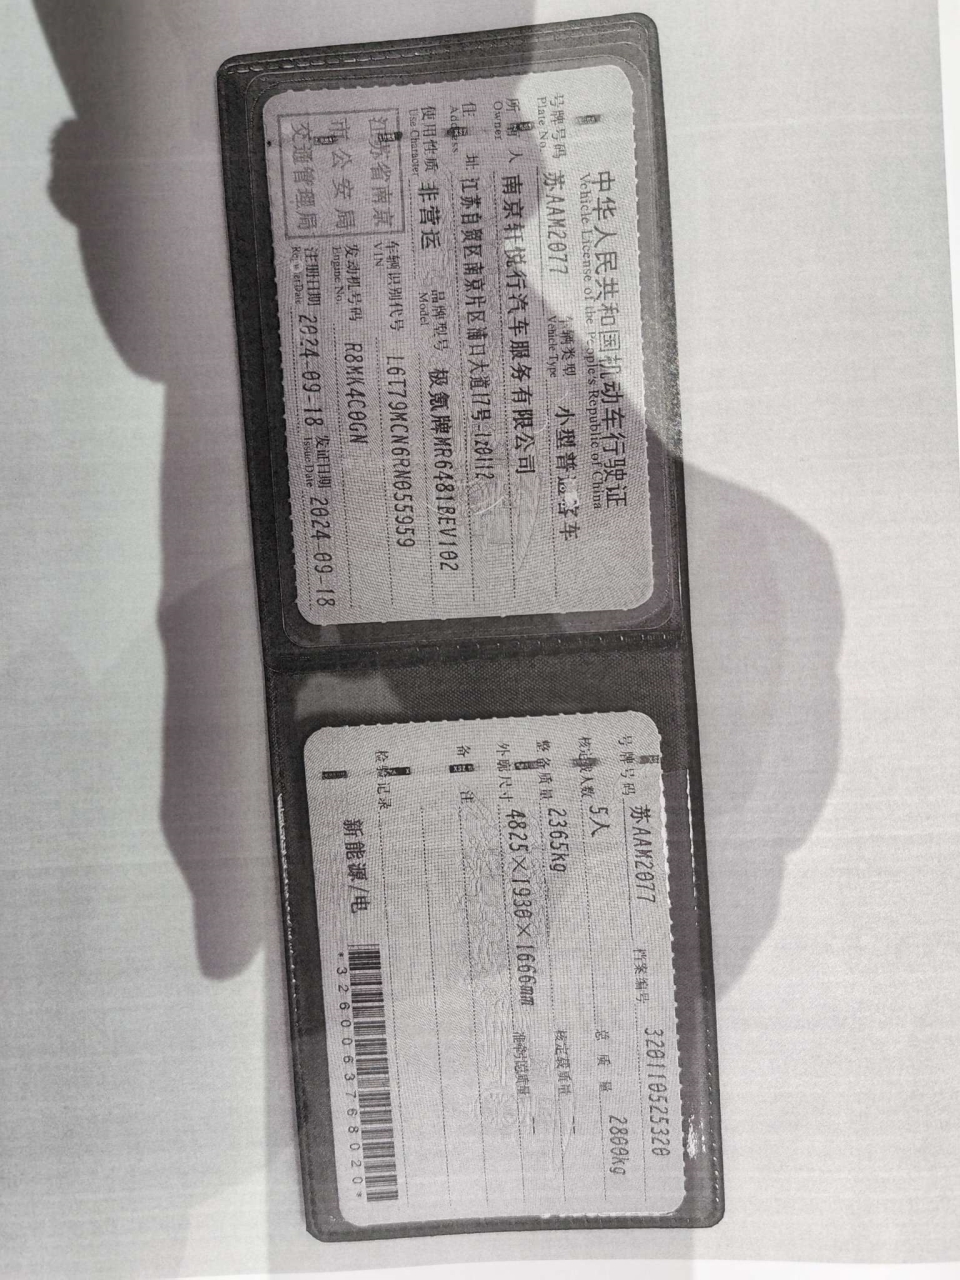 中华人民共和国机动车行驶证
Vehicle License of the People's Republic of China
号牌号码 苏AAM2077 车辆类型 小型普通客车
Plate No. Vehicle Type
所有人 南京轩悦行汽车服务有限公司
Owner
住址 江苏自贸区南京片区浦口大道17号-1z0112
Address
使用性质 非营运 品牌型号 极氪牌MR6481BEV102
Use Character Model
江苏省南京
市公安局
交通管理局
车辆识别代号 L6T79MCN6RN055959
VIN
发动机号码 R8MK4C0GN
Engine No.
注册日期 2024-09-18 发证日期 2024-09-18
Register Date Issue Date
号牌号码 苏AAM2077 档案编号 320110525320
核定载人数 5人 总质量 2800kg
整备质量 2365kg 核定载质量 --
外廓尺寸 4825×1930×1666mm 准牵引总质量 --
备注
检验记录
新能源/电
*3260063768020*